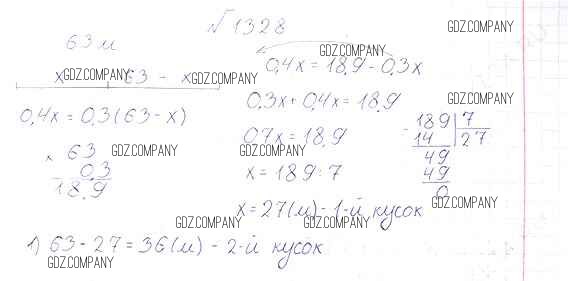 √1328
63 м
x 63 - x
0,4x = 0,3(63-x)
× 63
0,3
18.9
0,4x = 18,9 - 0,3x
0,3x + 0,4x = 18,9
0,7x = 18,9
x = 189:7
x = 27(м) - 1-й кусок
- 189 | 7
14 | 27
49
49
0
1) 63 - 27 = 36(м) - 2-й кусок
GDZ.COMPANY
GDZ.COMPANY
GDZ.COMPANY
GDZ.COMPANY
GDZ.COMPANY
GDZ.COMPANY
GDZ.COMPANY
GDZ.COMPANY
GDZ.COMPANY
GDZ.COMPANY
GDZ.COMPANY
GDZ.COMPANY